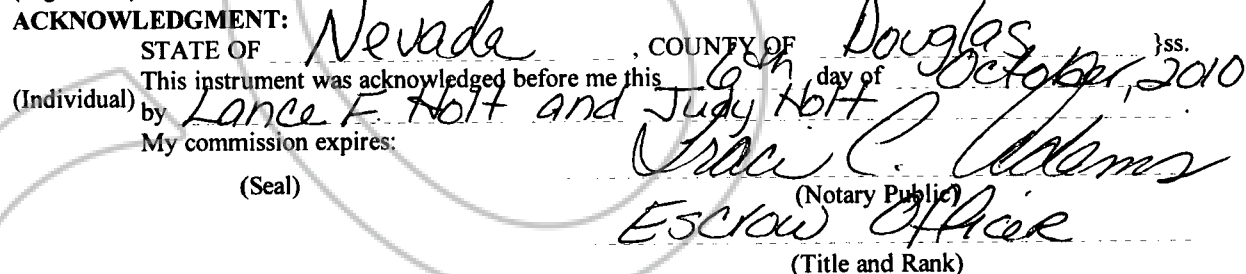 ACKNOWLEDGMENT:
STATE OF Nevada, COUNTY OF Douglas }ss.
This instrument was acknowledged before me this 6th day of October, 2010
(Individual) by Lance F. Holt and Judy Holt.
My commission expires:
Traci C. Adams
(Seal)
(Notary Public)
Escrow Officer
(Title and Rank)